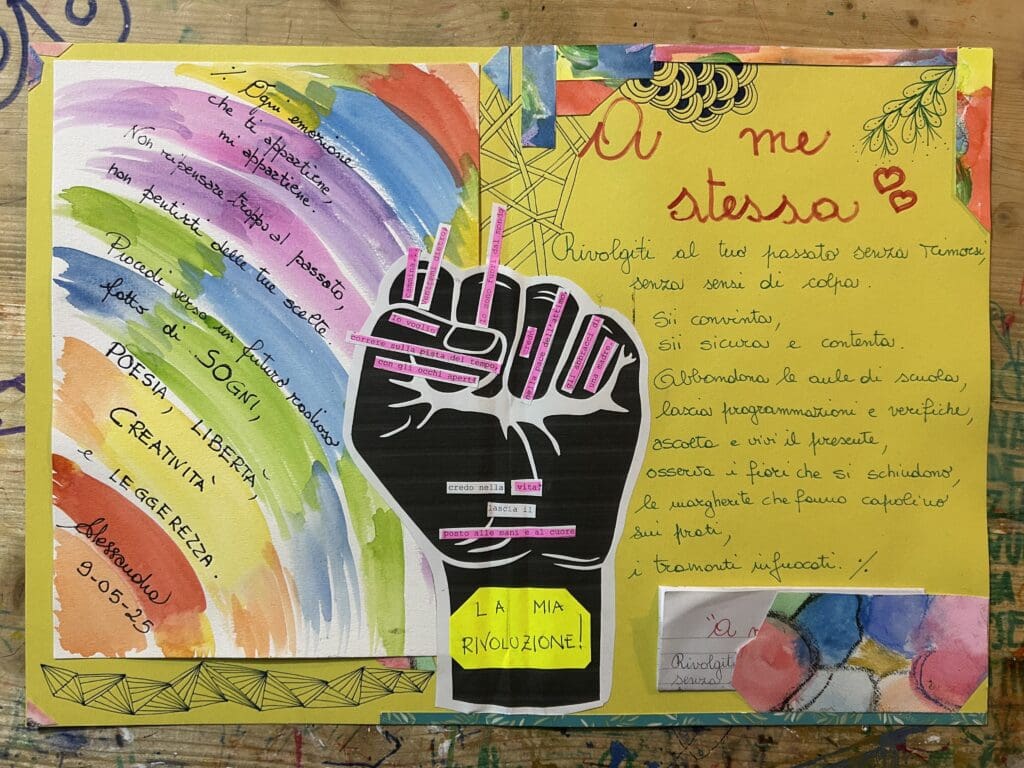 A me
stessa
Rivolgiti al tuo passato senza rimorsi,
senza sensi di colpa.
Sii convinta,
sii sicura e contenta.
Abbandona le aule di scuola,
lascia programmazioni e verifiche,
ascolta e vivi il presente,
osserva i fiori che si schiudono,
le margherite che fanno capolino
sui prati,
i tramonti infuocati. ./.
./. Ogni emozione
che ti appartiene,
mi appartiene.
Non ripensare troppo al passato,
non pentirti delle tue scelte.
Procedi verso un futuro radioso
fatto di SOGNI,
POESIA, LIBERTÀ,
CREATIVITÀ
e LEGGEREZZA.
Alessandra
9-05-25
cammina,
io sono fuori dal mondo
Io voglio
correre sulla pista del tempo,
con gli occhi aperti
credo
nella pace dell'attimo,
gli abbracci di
una madre,
credo nella vita
lascia il
posto alle mani e al cuore
LA MIA
RIVOLUZIONE!
"A
Rivolgiti
senza